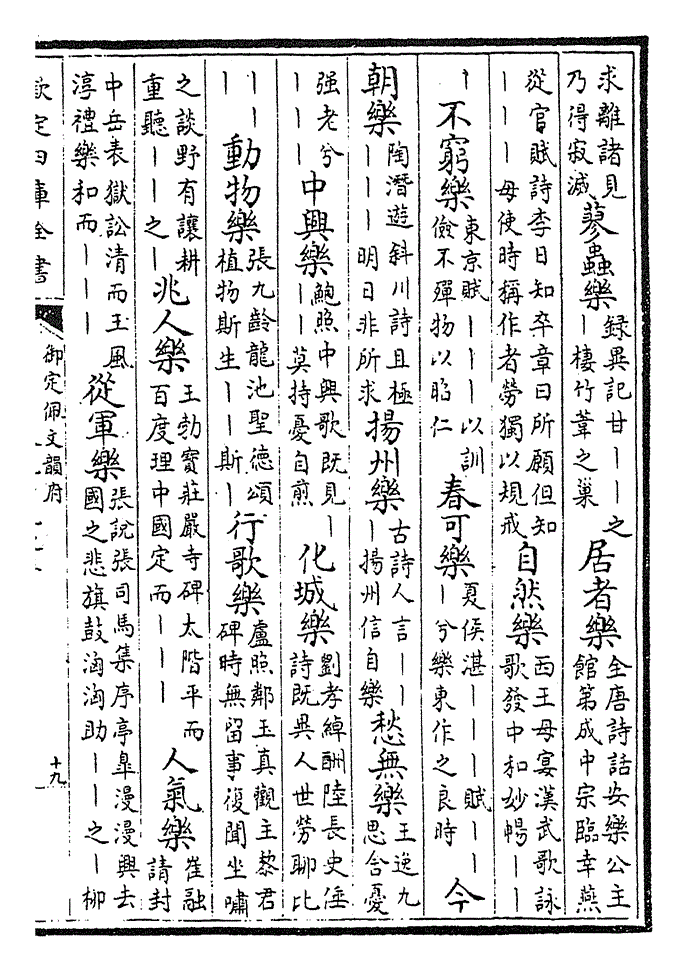 求離諸見
乃得寂滅
蓼蟲樂
録異記甘丨丨之
丨棲竹葦之巢
居者樂
全唐詩話安樂公主
館第成中宗臨幸燕
從官賦詩李日知卒章曰所願但知
丨丨丨毋使時稱作者勞獨以規戒
自然樂
西王母宴漢武歌詠
歌發中和妙暢丨丨
丨
不窮樂
東京賦丨丨丨以訓
儉不殫物以昭仁
春可樂
夏侯湛丨丨丨賦丨丨
丨兮樂東作之良時
今
朝樂
陶潛遊斜川詩且極
丨丨丨明日非所求
揚州樂
古詩人言丨丨
丨揚州信自樂
愁無樂
王逸九
思含憂
强老兮
丨丨丨
中興樂
鮑照中興歌既見丨
丨丨莫持憂自煎
化城樂
劉孝綽酬陸長史倕
詩既異人世勞聊比
丨丨
丨
動物樂
張九齡龍池聖德頌
植物斯生丨丨斯丨
行歌樂
盧照鄰玉真觀主黎君
碑時無留事復聞坐嘯
之談野有讓耕
重聽丨丨之丨
兆人樂
王勃寶莊嚴寺碑太階平而
百度理中國定而丨丨丨
人氣樂
崔融
請封
中岳表獄訟清而王風
淳禮樂和而丨丨丨
從軍樂
張說張司馬集序亭臯漫漫興去
國之悲旗鼓洶洶助丨丨之丨柳
欽定四庫全書
御定佩文韻府
十九